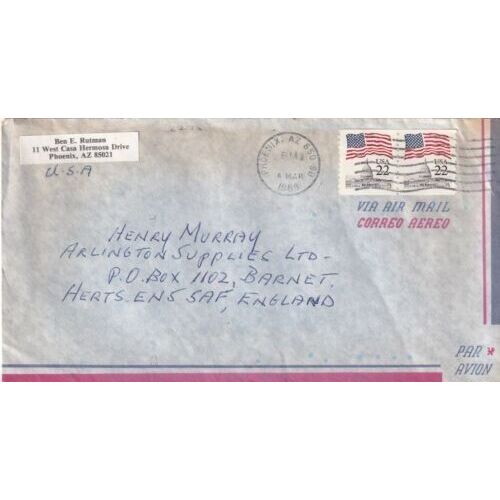 Ben E. Rutman
11 West Casa Hermosa Drive
Phoenix, AZ 85021
U.S.A
PHOENIX, AZ 850
4 MAR
USA
22
USA
22
VIA AIR MAIL
CORREO AEREO
HENRY MURRAY
ARLINGTON SUPPLIES LTD-
P.O.BOX 1102, BARNET.
HERTS. EN5 5AF, ENGLAND
PAR
AVION